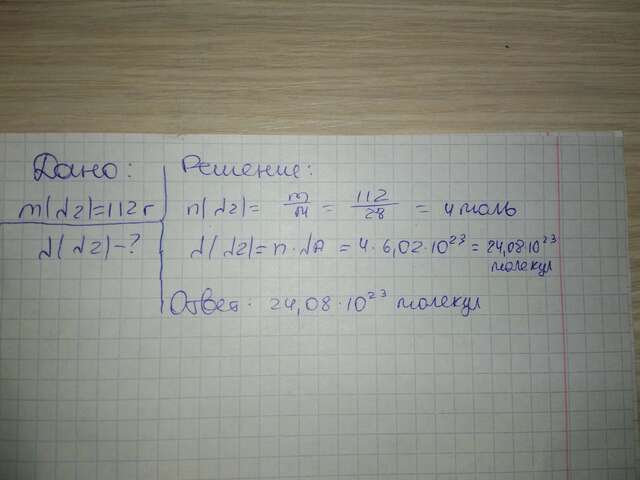 Дано:
m(N2)=112г
N(N2)-?
Решение:
n(N2)= m/M = 112/28 = 4 моль
N(N2)=n·NA = 4·6,02·10²³ = 24,08·10²³
молекул
Ответ: 24,08·10²³ молекул